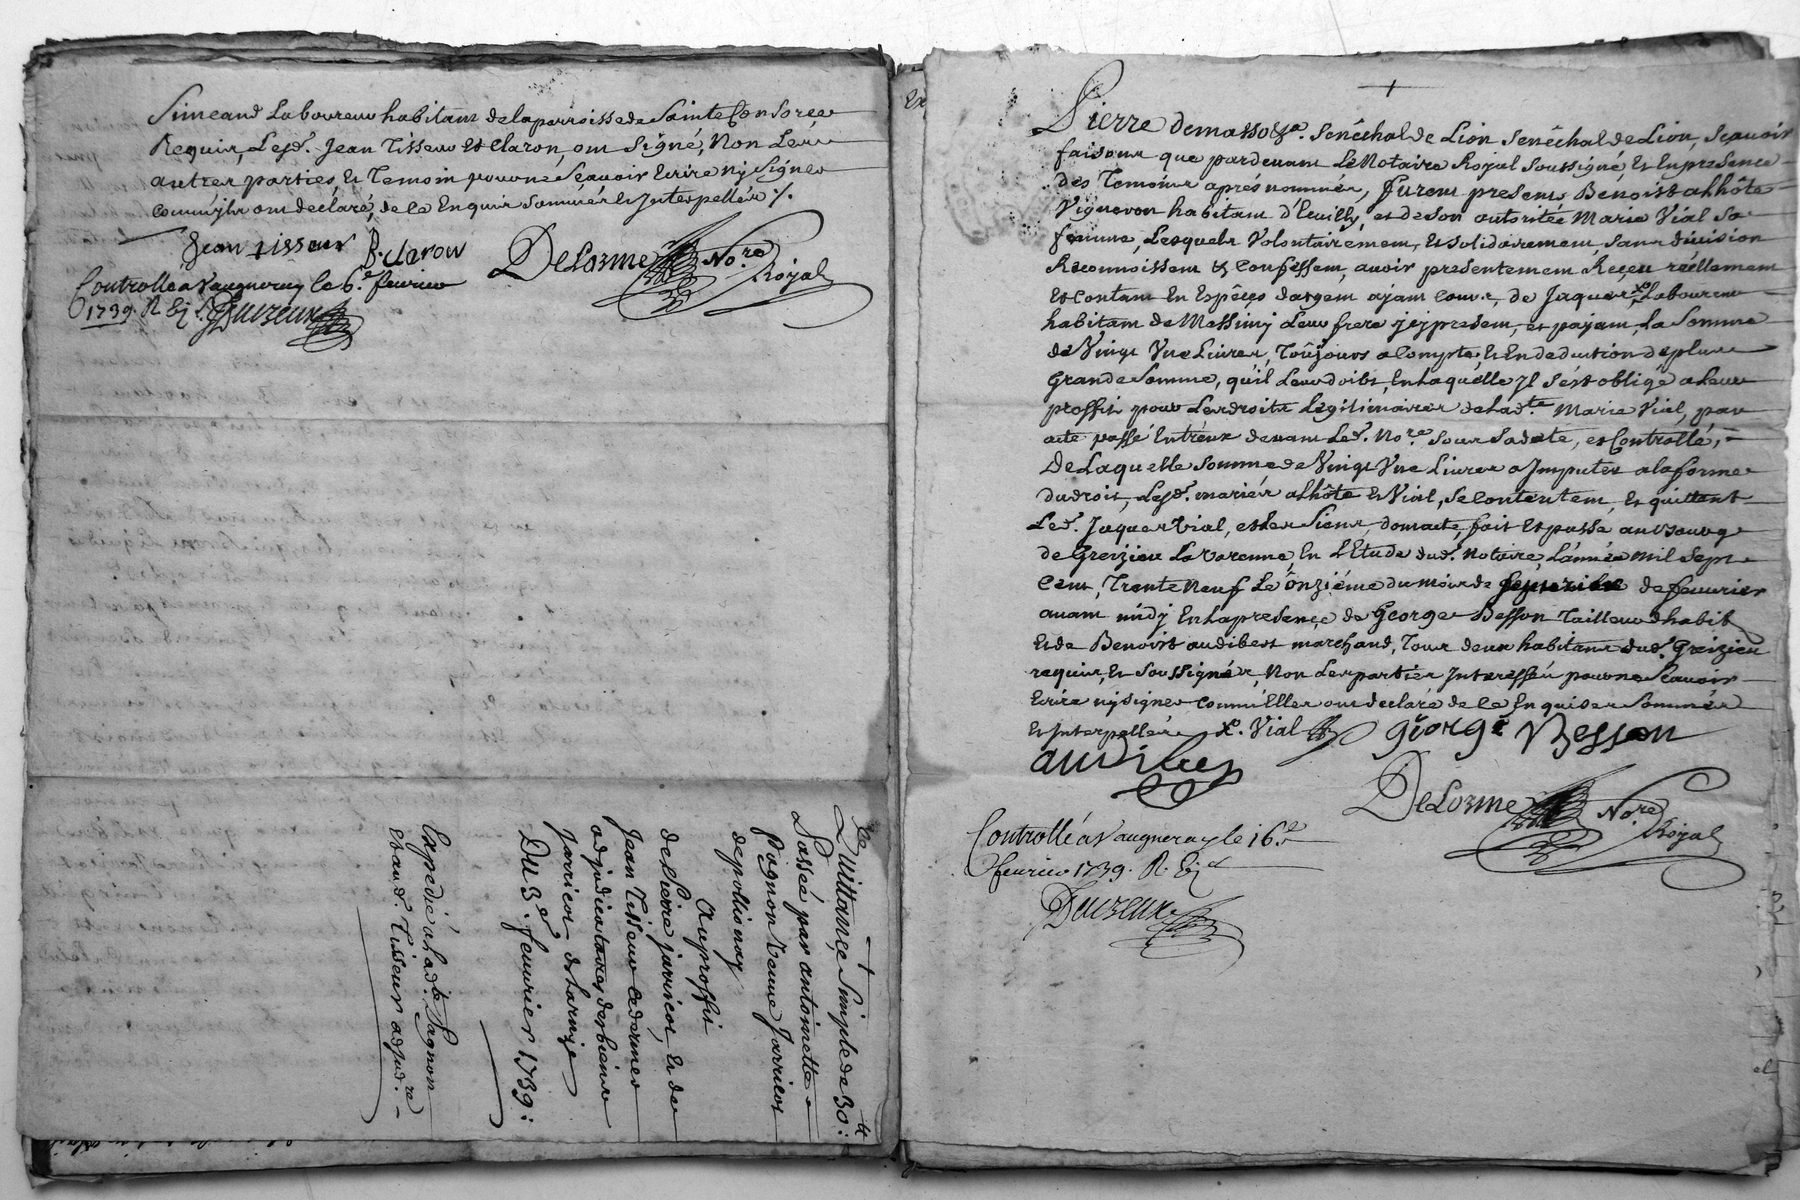 Simeand Laboureur habitant de la parroisse de Sainte Consorce
Requir, Lesd. Jean Tisseur et Claron, ont Signé, Non Les
autres parties, Et Temoin pour ne Sçavoir Ecrire ny Signer
comm'ils ont declaré, de ce Enquis Sommés Et Interpellés /.
Jean tisseur B. claron DeLorme No.re
Royal
Controllé à Vaugneray le 6.e fevrier
1739. R
Quittance Simple de 30.tt
Passée par antoinette
Pagnon Veuve Jarricot
de pollionay
au proffit
de Pierre jarricot, Et de
Jean Tisseur cadermer
adjudicataires des biens
Jarricot de Larnize
Du 3.e feuvrier 1739:
Expedié a Lad.te Pagnon
Et aud. Tisseur adjud.re
Pierre Demasso Sénêchal de Lion Senêchal de Lion, Sçavoir
faisons que pardevant Le Notaire Royal Soussigné, Et En presence
des Temoins aprés nommés, furent presens Benoist alhôte
Vigneron habitant d'Eveilly, et de Son autoritée Marie Vial Sa
femme, Lesquels Volontairement, Et Solidairement, Sans division
Reconnoissent & Confessent, avoir presentement Reçeu réellement
Et contant En Espêces d'argent ajant cours, de Jaques Laboureur
habitant de Messimj Leur frere jcj present, et pajant, La Somme
de Vingt Une Livres, Toûjours a Compte Et En deduction de plus
Grande Somme, qu'il Leur doibt, En Laquélle Jl S'est obligé a Leur
proffit pour Les droits Légitimaires de Lad.te Marie Vial, par
acte passé Entréux devant Led. No.re Sous Sa date, et Controllé,
De Laquelle Somme de Vingt Une Livres a Jmputer a la forme
du droit, Lesd. mariés alhôte Et Vial, Se Contentent, Et quittent
Led. Jaques Vial, et Les Siens, dont acte, fait Et passé au Bourg
de Greizieu La Varenne, En L'Etude dud. Notaire, L'année mil Sept
Cent, Trente Neuf Le Onziéme du mois de de feuvrier
avant midj En La presençe de George Besson Tailleur d'habit
Et de Benoist audibert marchand, Tous deux habitans dud. Greizieu
requis, Et Soussignés, Non Les parties Interessées pour ne Sçavoir
Ecrire nj Signer comm'Elles ont declaré de ce Enquises Sommées
Et Interpellées X.o Vial giorge Besson
DeLorme No.re
Royal
Controllé à Vaugneray le 16.e
fevrier 1739. R.